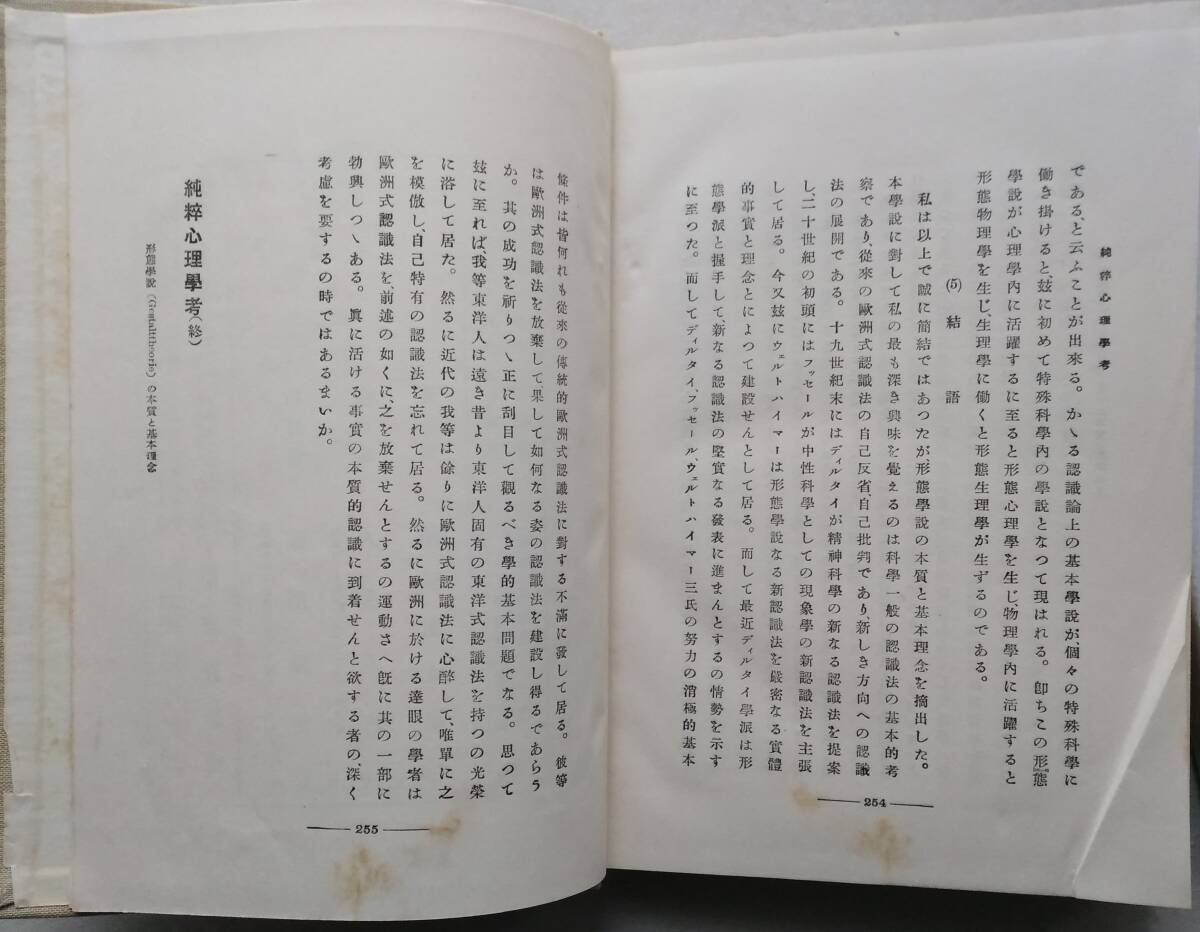 純粹心理學考
である、と云ふことが出來る。かゝる認識論上の基本學說が、個々の特殊科學に
働き掛けると、玆に初めて特殊科學內の學說となつて現はれる。卽ちこの形態
學說が心理學內に活躍するに至ると形態心理學を生じ、物理學內に活躍すると
形態物理學を生じ、生理學に働くと形態生理學が生ずるのである。
(5) 結語
私は以上で誠に簡結ではあつたが、形態學說の本質と基本理念を摘出した。
本學說に對して私の最も深き興味を覺えるのは科學一般の認識法の基本的考
察であり、從來の歐洲式認識法の自己反省、自己批判であり、新しき方向への認識
法の展開である。十九世紀末にはディルタイが精神科學の新なる認識法を提案
し、二十世紀の初頭にはフッセールが中性科學としての現象學の新認識法を主張
して居る。今又玆にウェルトハイマーは形態學說なる新認識法を嚴密なる實體
的事實と理念とによつて建設せんとして居る。而して最近ディルタイ學派は形
態學派と握手して、新なる認識法の堅實なる發表に進まんとするの情勢を示す
に至つた。而してディルタイ、フッセール、ウェルトハイマー三氏の努力の消極的基本
254
條件は皆何れも從來の傳統的歐洲式認識法に對する不滿に發して居る。彼等
は歐洲式認識法を放棄して、果して如何なる姿の認識法を建設し得るであらう
か。其の成功を祈りつゝ正に刮目して觀るべき學的基本問題でなる。思つて
玆に至れば、我等東洋人は遠き昔より東洋人固有の東洋式認識法を持つの光榮
に浴して居た。然るに近代の我等は餘りに歐洲式認識法に心醉して、唯單に之
を模倣し、自己特有の認識法を忘れて居る。然るに歐洲に於ける達眼の學者は
歐洲式認識法を、前述の如くに、之を放棄せんとするの運動さへ旣に其の一部に
勃興しつゝある。眞に活ける事實の本質的認識に到着せんと欲する者の、深く
考慮を要するの時ではあるまいか。
純粹心理學考(終)
形態學說(Gestalttheorie)の本質と基本理念
255